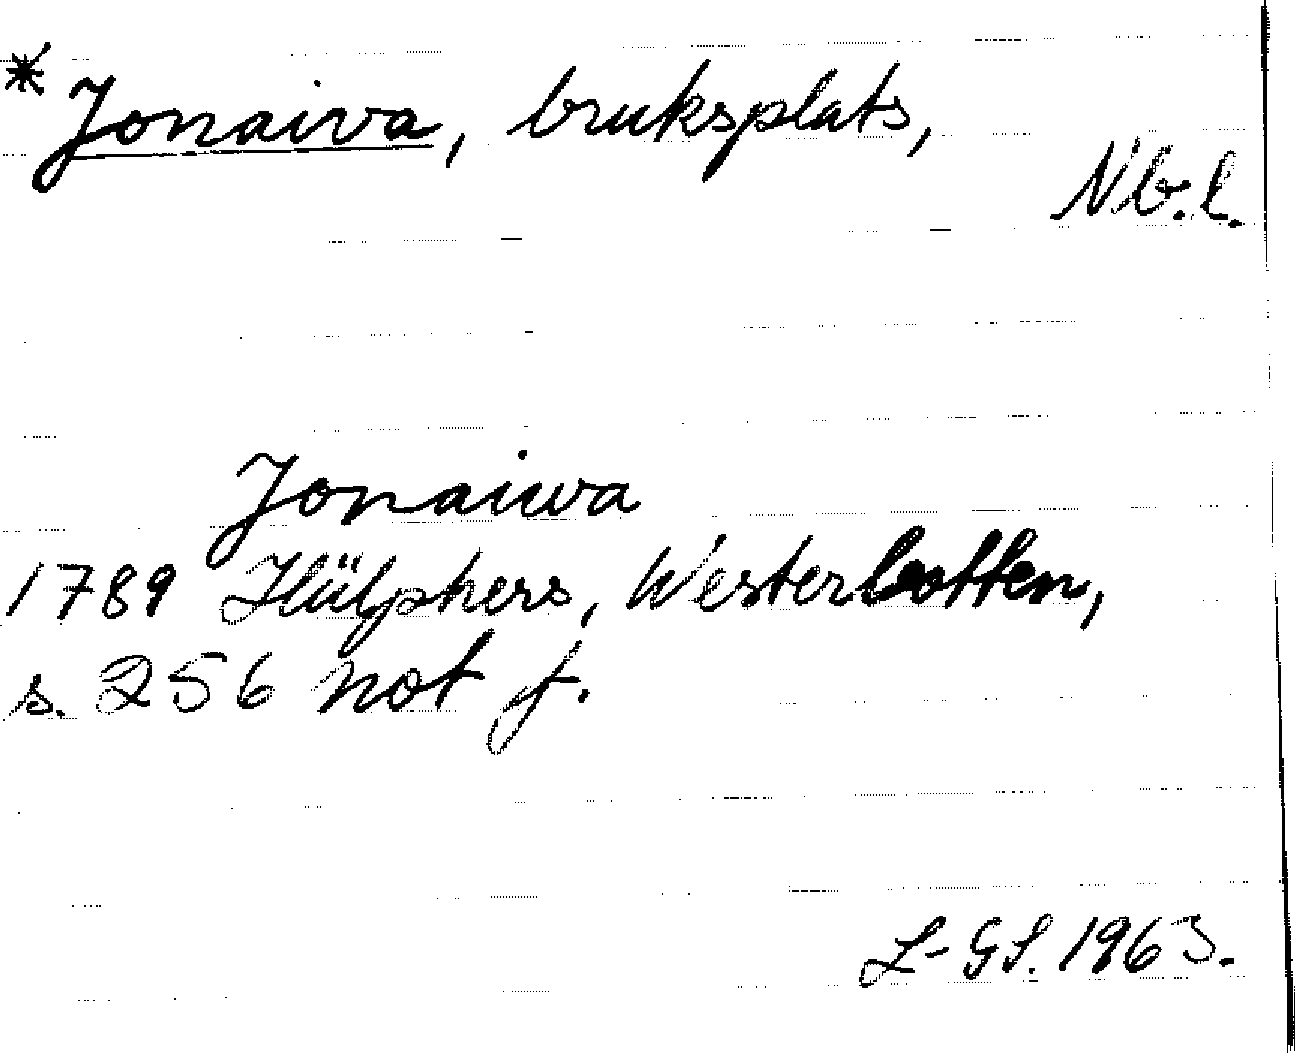 * Jonaiva, bruksplats,
Nb.l.
Jonaiwa
1789 Hülphers, Westerbotten,
s. 256 not f.
L-GS. 1963.